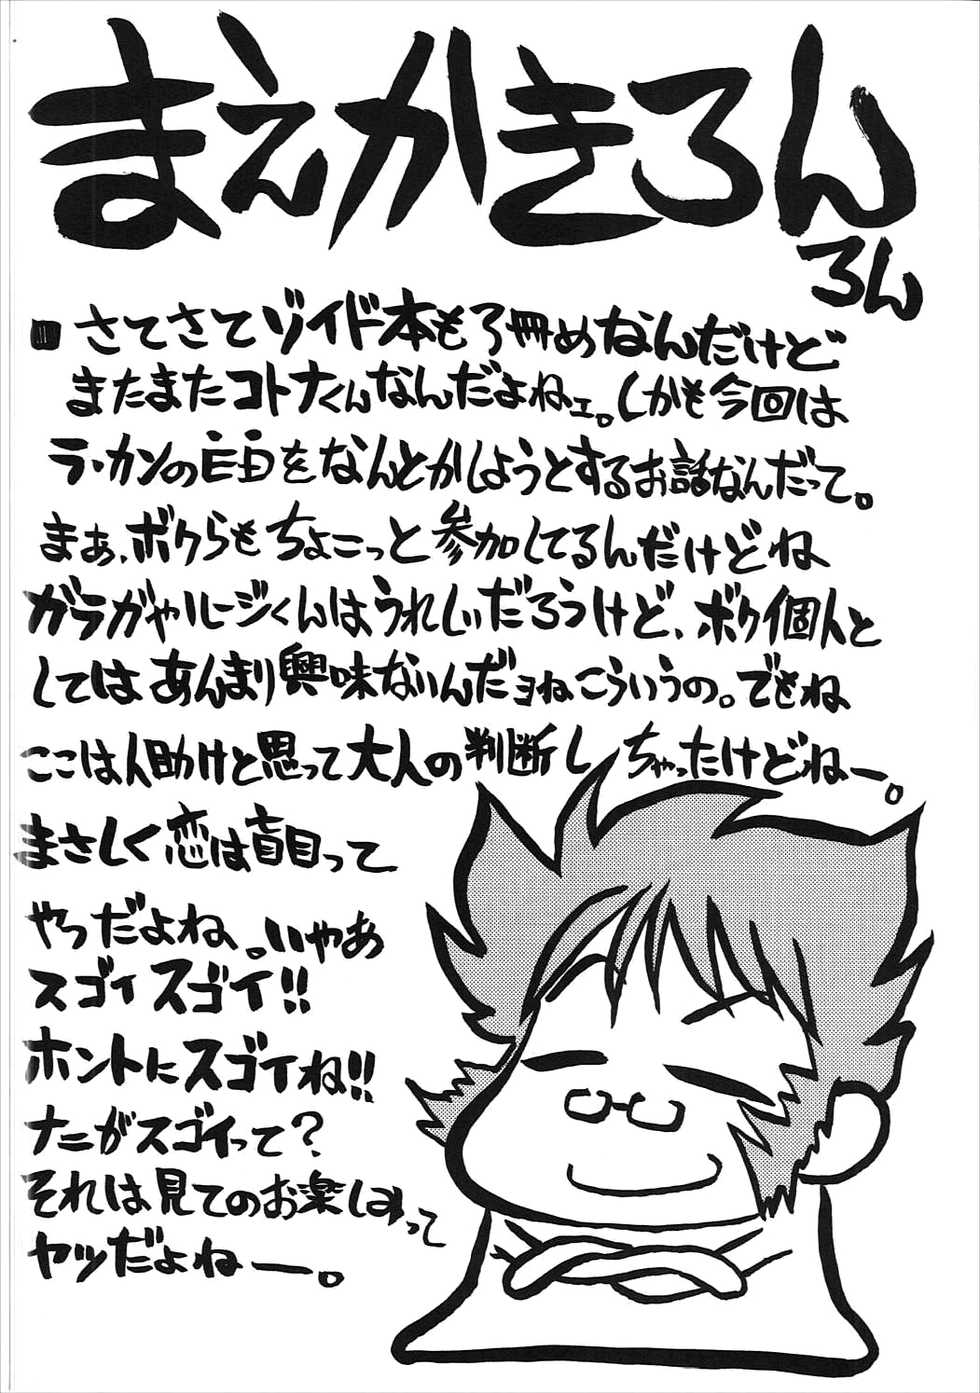 まえがきろん
ろん
■さてさてゾイド本も3冊めなんだけど
またまたコトナくんなんだよねェ。しかも今回は
ラ・カンの盲目をなんとかしようとするお話なんだって。
まぁ、ボクらもちょこっと参加してるんだけどね
ガラガやルージくんはうれしいだろうけど、ボク個人と
してはあんまり興味ないんだヨねこういうの。でもね
ここは人助けと思って大人の判断しちゃったけどねー。
まさしく恋は盲目って
やつだよね。いやあ
スゴイスゴイ!!
ホントにスゴイね!!
ナニがスゴイって?
それは見てのお楽しみって
ヤツだよねー。